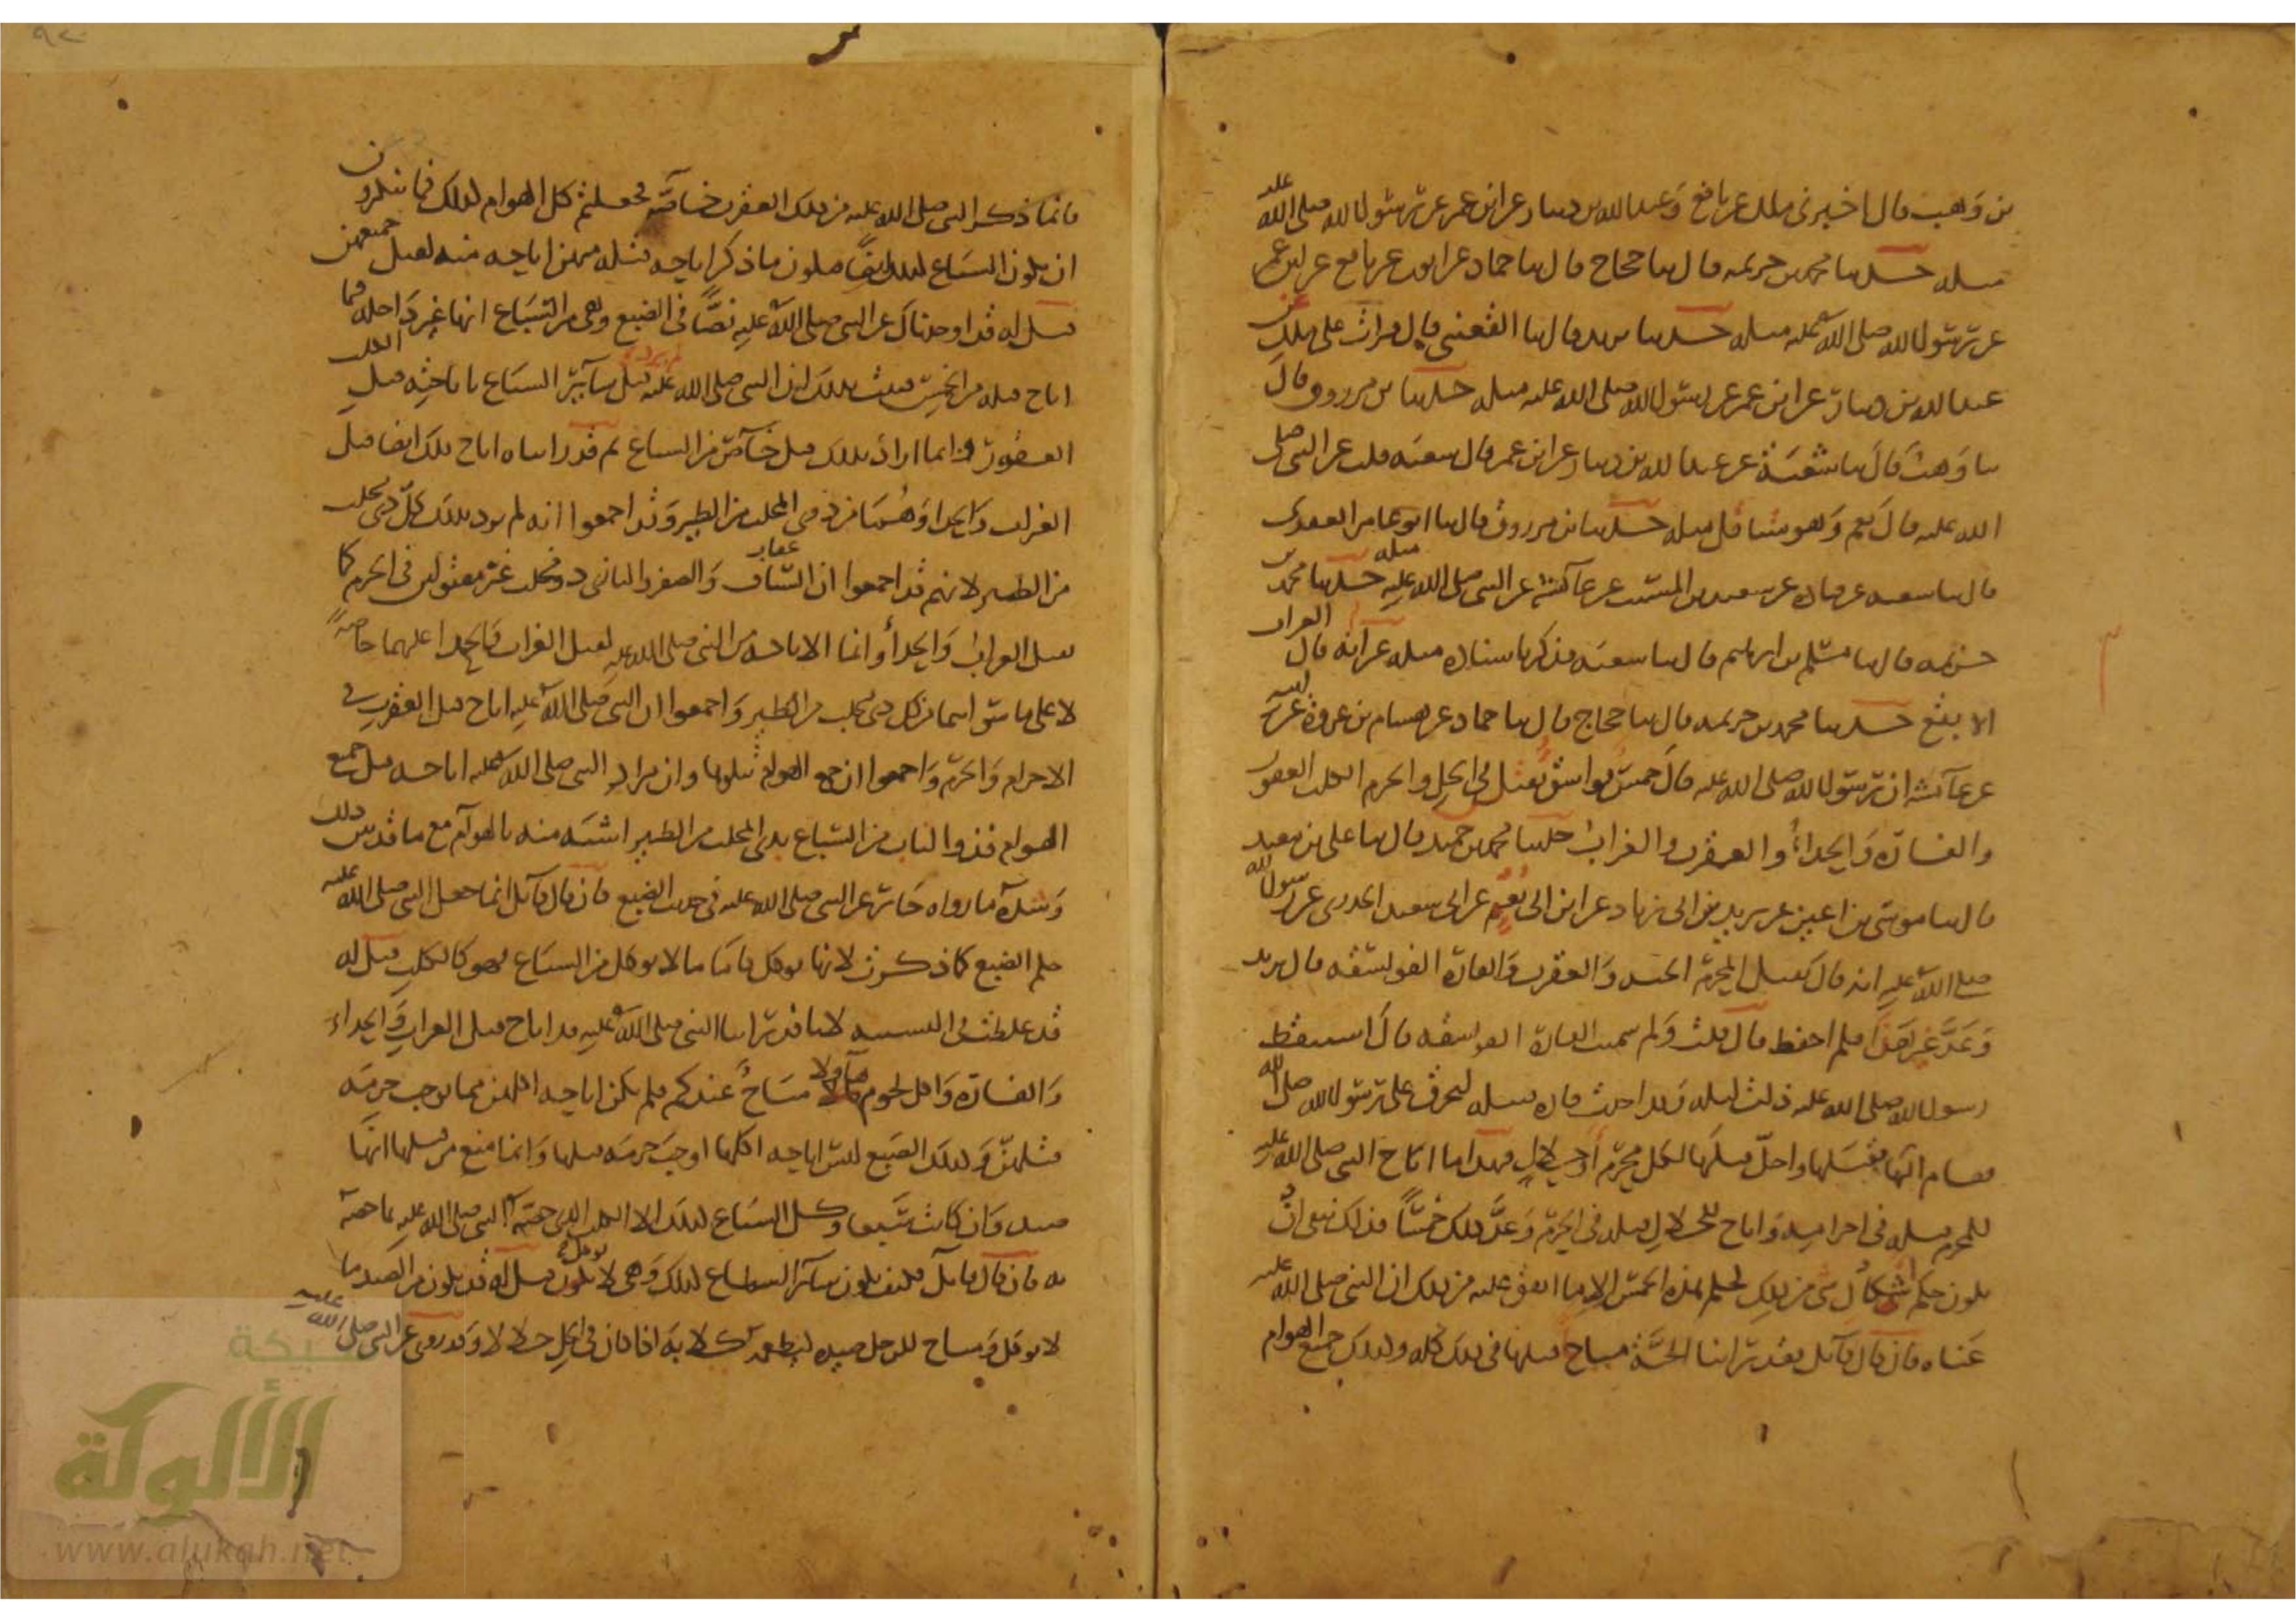 بن وهب قال اخبرني ملك عن نافع وعبد الله بن دينار عن ابن عمر عن رسول الله صلى الله عليه
مثله حدثنا محمد بن خزيمه قال ثنا حجاج قال ثنا حماد عن ايوب عن نافع عن ابن عمر
عن رسول الله صلى الله عليه مثله حدثنا يزيد قال ثنا القعنبي قال قرات على ملك عن
عبد الله بن دينار عن ابن عمر عن رسول الله صلى الله عليه مثله حدثنا ابن مرزوق قال
ثنا وهب قال ثنا شعبة عن عبد الله بن دينار عن ابن عمر قال شعبه قلت عن النبي صلى
الله عليه قال نعم وهو مثله حدثنا ابن مرزوق قال ثنا ابو عامر العقدي
قال ثنا شعبه عن قتاده عن سعيد بن المسيب عن عائشة عن النبي صلى الله عليه مثله حدثنا محمد بن
خزيمه قال ثنا مسلم بن ابراهيم قال ثنا شعبه فذكر باسناده مثله غير انه قال الغراب
الابقع حدثنا محمد بن خزيمه قال ثنا حجاج قال ثنا حماد عن هشام بن عروة عن ابيه
عن عائشه ان رسول الله صلى الله عليه قال خمس فواسق يقتلن في الحل والحرم الكلب العقور
والفارة والحداة والعقرب والغراب حدثنا محمد بن حميد قال ثنا علي بن معبد
قال ثنا موسى بن اعين عن يزيد بن ابي زياد عن ابن ابي نعم عن ابي سعيد الخدري عن رسول الله
صلى الله عليه انه قال يقتل المحرم الحيه والعقرب والفارة الفويسقه قال يزيد
وعد غير هذا فلم احفظ قال قلت ولم سميت الفارة الفويسقه قال استيقظ
رسول الله صلى الله عليه ذات ليله وقد اخذت فاره فتيله لتحرق على رسول الله صلى الله
فقام اليها فقتلها واحل قتلها لكل محرم او حلال فهذا ما اباح النبي صلى الله عليه
للمحرم قتله في احرامه واباح للحلال قتله في الحرم وعد ذلك خمسا فذلك ينفي ان
يكون حكم اشكال شي من ذلك كحكم هذه الخمس الا ما اتفق عليه من ذلك ان النبي صلى الله عليه
عناه فان قال قائل فقد راينا الحية مباح قتلها في ذلك كله وكذلك جميع الهوام
فانما ذكر النبي صلى الله عليه من ذلك العقرب خاصة فجعلتم كل الهوام كذلك فما تنكرون
ان يكون السباع كذلك ايضا فيكون ما ذكر اباحه قتله منهن اباحه منه لقتل جميعهن
قيل له قد اوجدناك عن النبي صلى الله عليه نصا في الضبع وهي من السباع انها غير داخله فيما
اباح قتله من الخمس فثبت بذلك ان النبي صلى الله عليه لم يرد قتل سائر السباع باباحته قتل الكلب
العقور وانما اراد بذلك قتل خاص من السباع ثم قد رايناه اباح ذلك ايضا قتل
الغراب والحداة وهما من ذي المخلب من الطير وقد اجمعوا انه لم يرد بذلك كل ذي مخلب
من الطير لانهم قد اجمعوا ان العقاب والصقر والبازي ذو مخلب غير مقتولين في الحرم كما
يقتل الغراب والحدأ وانما الاباحه من النبي صلى الله عليه لقتل الغراب والحدا عليهما خاصة
لا على ما سواهما من كل ذي مخلب من الطير واجمعوا ان النبي صلى الله عليه اباح قتل العقرب في
الاحرام والحرم واجمعوا ان جميع الهوام مثلها وان مراد النبي صلى الله عليه اباحه قتل جميع
الهوام فذو الناب من السباع بذي المخلب من الطير اشبه منه بالهوام مع ما قد بين ذلك
وشده ما رواه جابر عن النبي صلى الله عليه في حديث الضبع فان قال قائل انما جعل النبي صلى الله عليه
حكم الضبع كما ذكرت لانها توكل فاما ما لا يوكل من السباع فهو كالكلب قيل له
قد غلطت في التشبيه لانا قد راينا النبي صلى الله عليه قد اباح قتل الغراب والحداة
والفارة واكل لحوم هاولا مباح عندكم فلم يكن اباحه اكلهن مما يوجب حرمه
قتلهن وكذلك الضبع ليس اباحه اكلها اوجب حرمه قتلها وانما منع من قتلها انها
صيد وان كانت سبعا وكل السباع كذلك الا الكلب الذي خصه النبي صلى الله عليه بما خصه
به فان قال قائل فكيف يكون سائر السباع كذلك وهي لا توكل قيل له قد يكون من الصيد ما
لا يوكل ومباح للرجل صيده ليطعمه كلابه اذا كان في الحل حلالا وقد روي عن النبي صلى الله عليه
شبكة
الألوكة
www.alukah.net